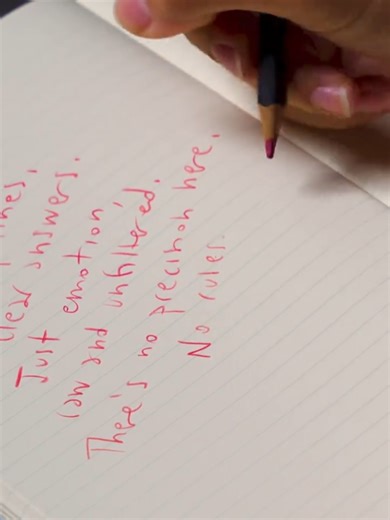 clear answers.
Just emotion,
raw and unfiltered.
There's no precision here.
No rules.